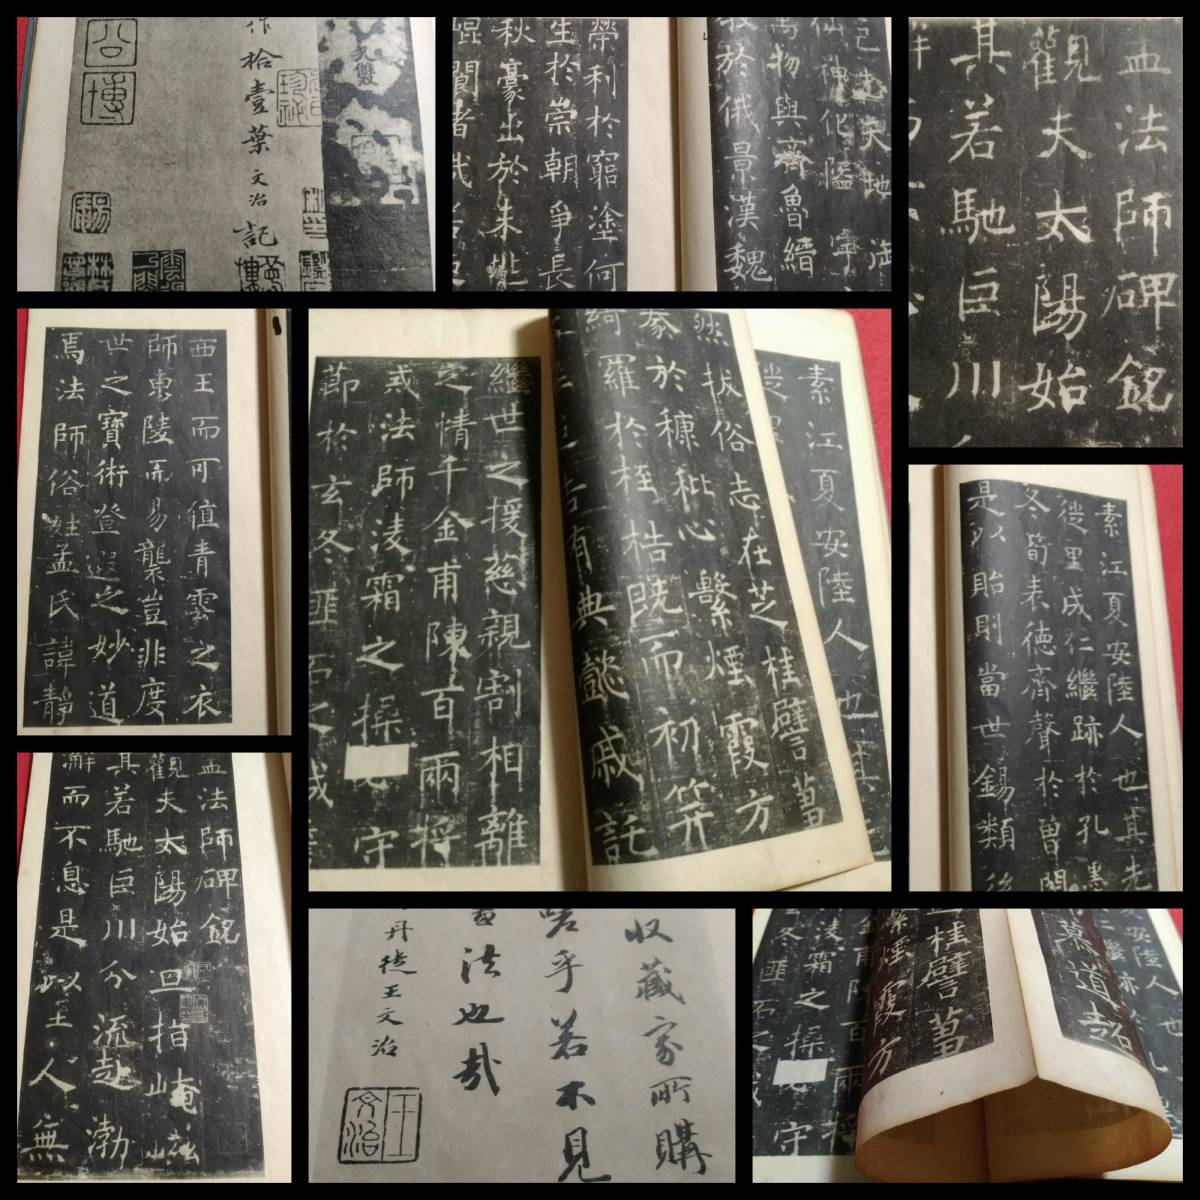 作拾壹葉文治記
公博
天地海
仙神化隘宇
萬物與齊魯縉
我於俄景漢魏
榮利於窮塗何
生於崇朝爭長
秋豪出於未兆
孟法師碑銘
觀夫太陽始
其若馳巨川
西王而可值青雲之衣
師東陵而易襲豈非度
世之寶術登遐之妙道
焉法師俗姓孟氏諱靜
素江夏安陸人也其先
然拔俗志在芝桂譬葷
豢於穅粃心繫煙霞方
綺羅於桎梏既而初笄
有典懿戚託
繼世之援慈親割相離
之情千金甫陳百兩將
戒法師淩霜之操必守
節於玄冬匪石之誠
素江夏安陸人也其先
徙里成仁繼跡於孔墨
冬筍表德齊聲於曾閔
是以貽則當世錫類後
孟法師碑銘
觀夫太陽始旦指崦嵫
其若馳巨川分流赴渤
澥而不息是以至人無
收藏家所購
嗟乎若不見
法也哉
丹徒王文治
王文治
安陸人也
慕道超
桂譬葷
繫煙霞方
百兩將
淩霜之操必守
冬匪石之誠